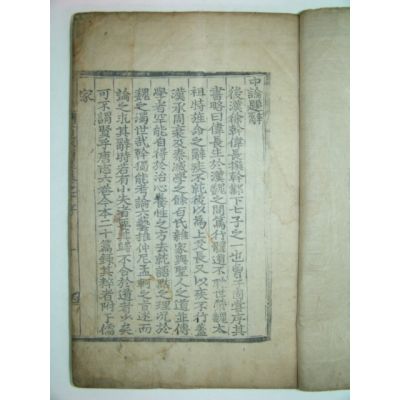 中論題辭
後漢徐幹偉長撰幹鄴下七子之一也曾子固嘗序其
書略曰偉長生於漢魏之間篤行體道不耽世榮魏太
祖特旌命之辭疾不就後以爲上艾長又以疾不行蓋
漢承周衰及秦滅學之餘百氏雜家與聖人之道並傳
學者罕能自得於治心養性之方去就語默之理況於
魏之濁世哉幹獨能考論六藝推仲尼孟軻之旨述而
論之求其辭時若有小失者要其歸不合於道者少矣
可不謂賢乎唐志六卷今本二十篇錄其粹者附于儒
家